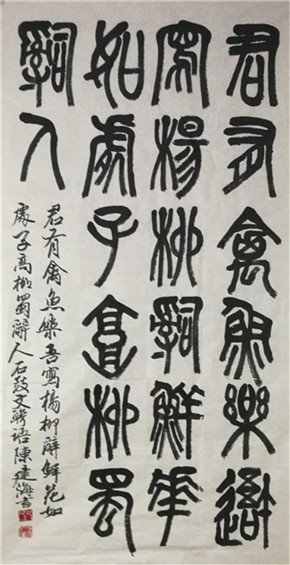 君有禽魚樂吾
寫楊柳辭鮮花
如處子高柳蜀
辭人
君有禽魚樂吾寫楊柳辭鮮花如
處子高柳蜀辭人石鼓文聯語陳建海書